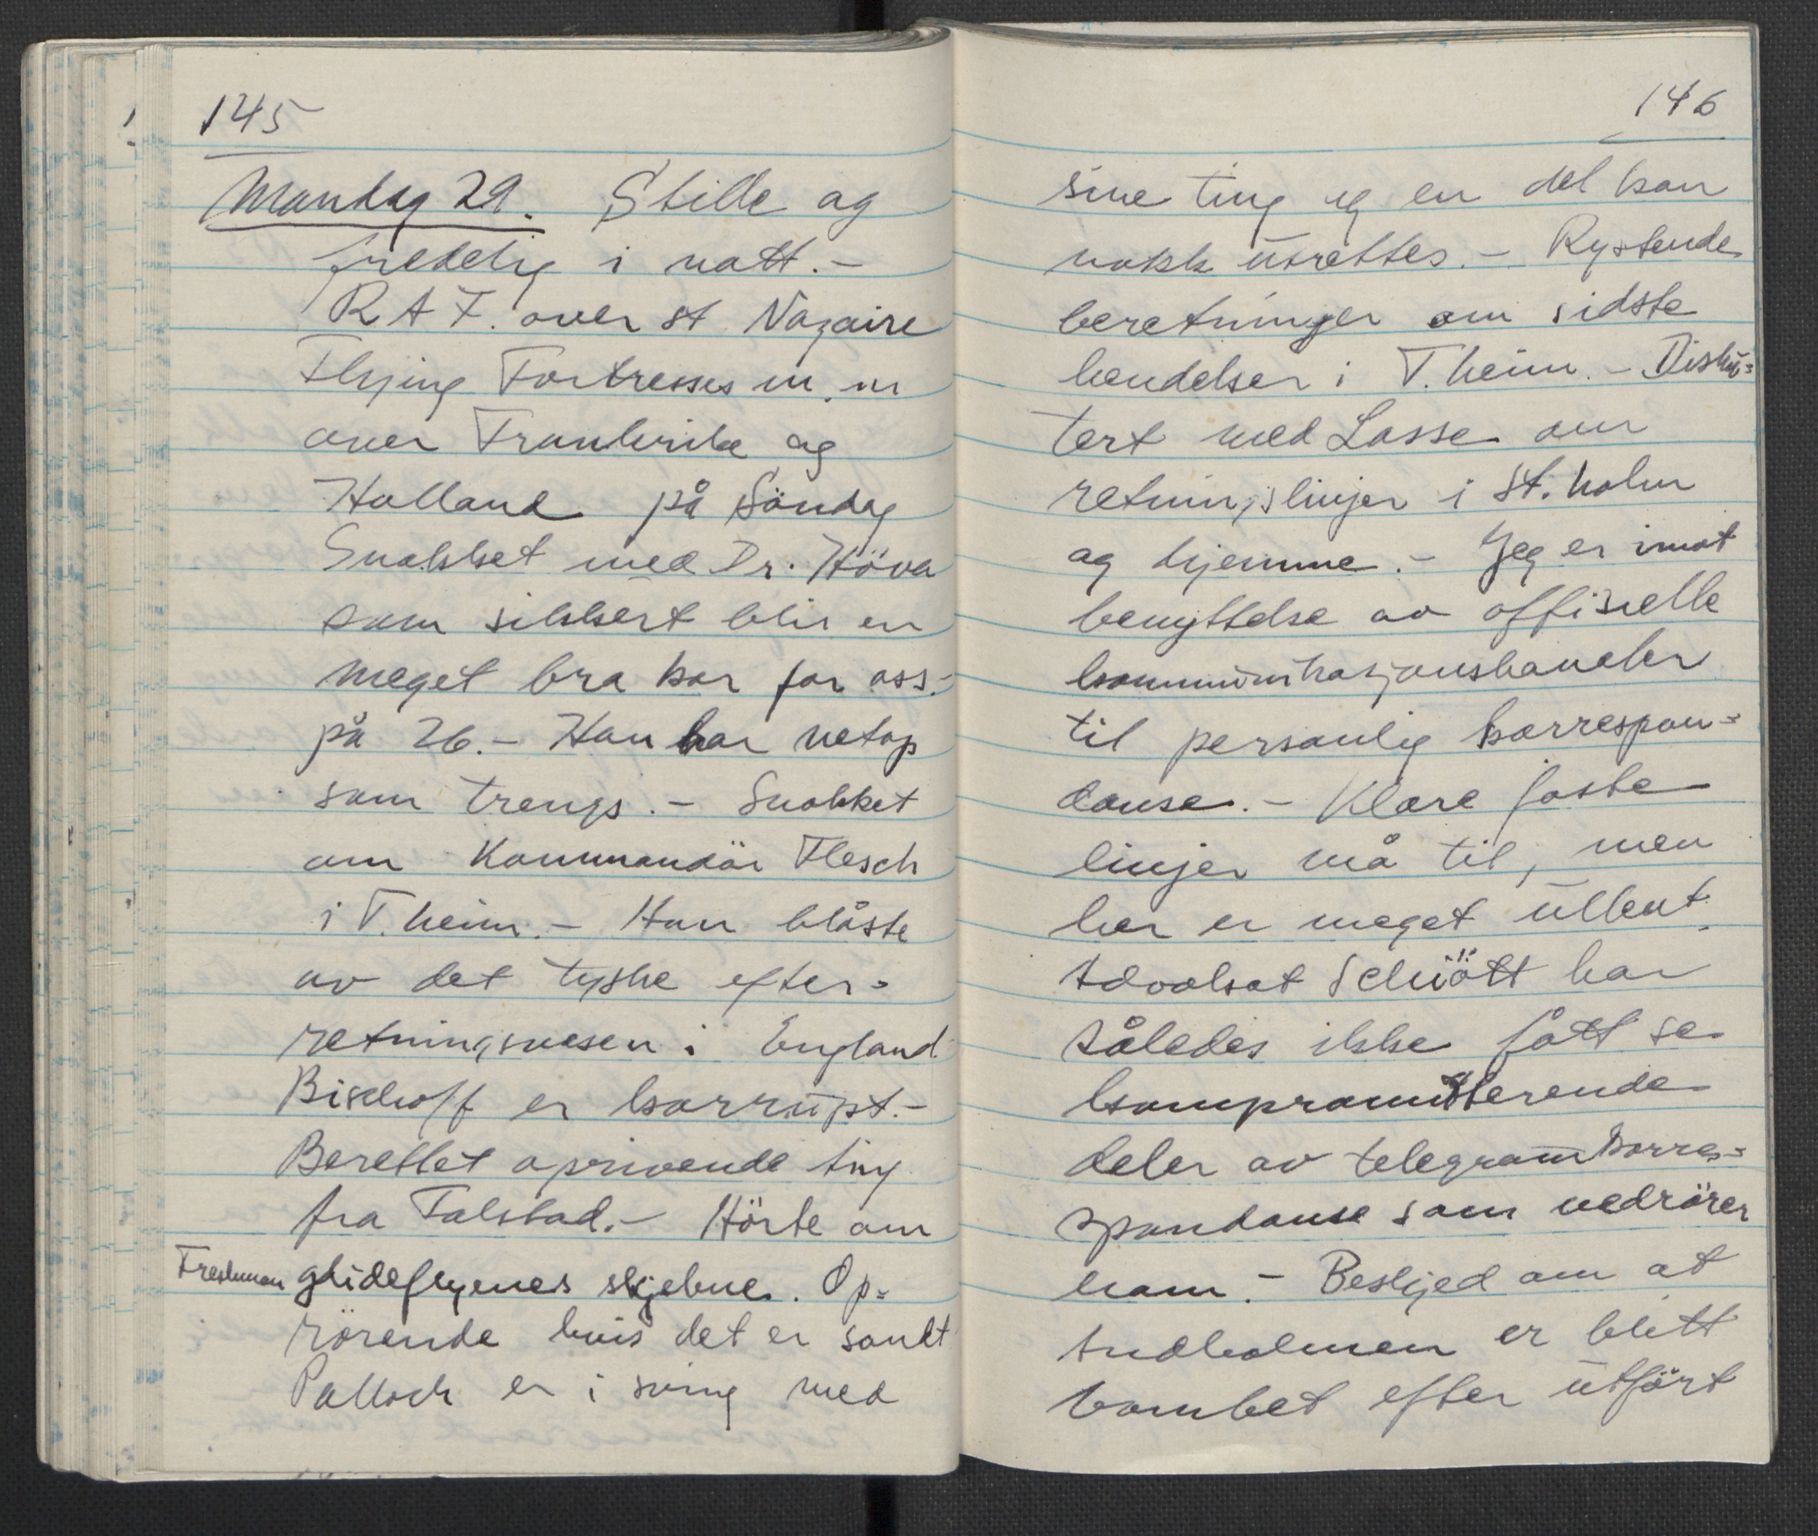 145
Mandag 29. Stille og
fredelig i natt. -
R A F. over st Nazaire
Flying Fortresses m. m
over Frankrike og
Holland på Söndag
Snakket med Dr. Höva
som sikkert blir en
meget bra kar for oss. -
på 26. - Han har netop
som trengs. - Snakket
om Kommandör Flesch
i T.heim. - Han blåste
av det tyske efter=
retningsvesen i England
Bischoff er korrupt. -
Berettet oprivende ting
fra Falstad. - Hörte om
Freshman glideflyenes skjebne. Op=
rörende hvis det er sandt
Pallock er i sving med
146
sine ting og en del kan
nokk utrettes. - Rystende
beretninger om sidste
hendelser i T.heim. - Disku=
tert med Lasse om
retningslinjer i St.holm
og hjemme. - Jeg er imot
benyttelse av offisielle
kommunikasjonskaneler
til personlig korrespon=
danse. - Klare faste
linjer må til, men
her er meget ullent.
Advokat Schiött har
således ikke fått se
kompromitterende
deler av telegramkorre=
spondanse som vedrörer
ham. - Beskjed om at
Andholmen er blitt
bombet efter utfört